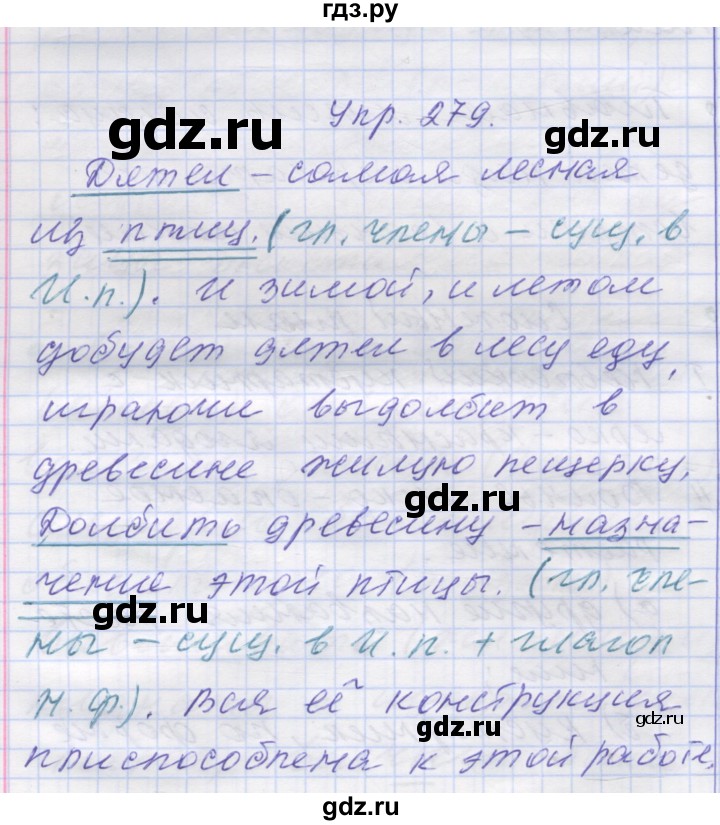 гдз.ру
gdz.ru
Упр. 279.
gdz.ru
Дятел – самая лесная
из птиц. (гл. члены – сущ. в
gdz.ru
И.п.). И зимой, и летом
добудет дятел в лесу еду,
играючи выдолбит в
древесине жилую пещерку.
gdz.ru
Долбить древесину – назна-
чение этой птицы. (гл. чле-
gdz.ru
ны – сущ. в И.п. + глагол
н.ф.). Вся её конструкция
gdz.ru
gdz.ru
приспособлена к этой работе,
gdz.ru